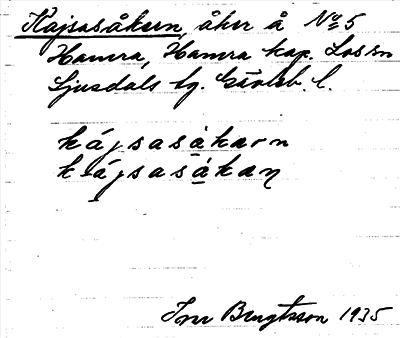 Kajsasåkern, åker å No 5
Hamra, Hamra kap. Los sn
Ljusdals tg. Gävleb. l.
kájsasåkarn
kájsasåkaɳ
Bengtsson 1935